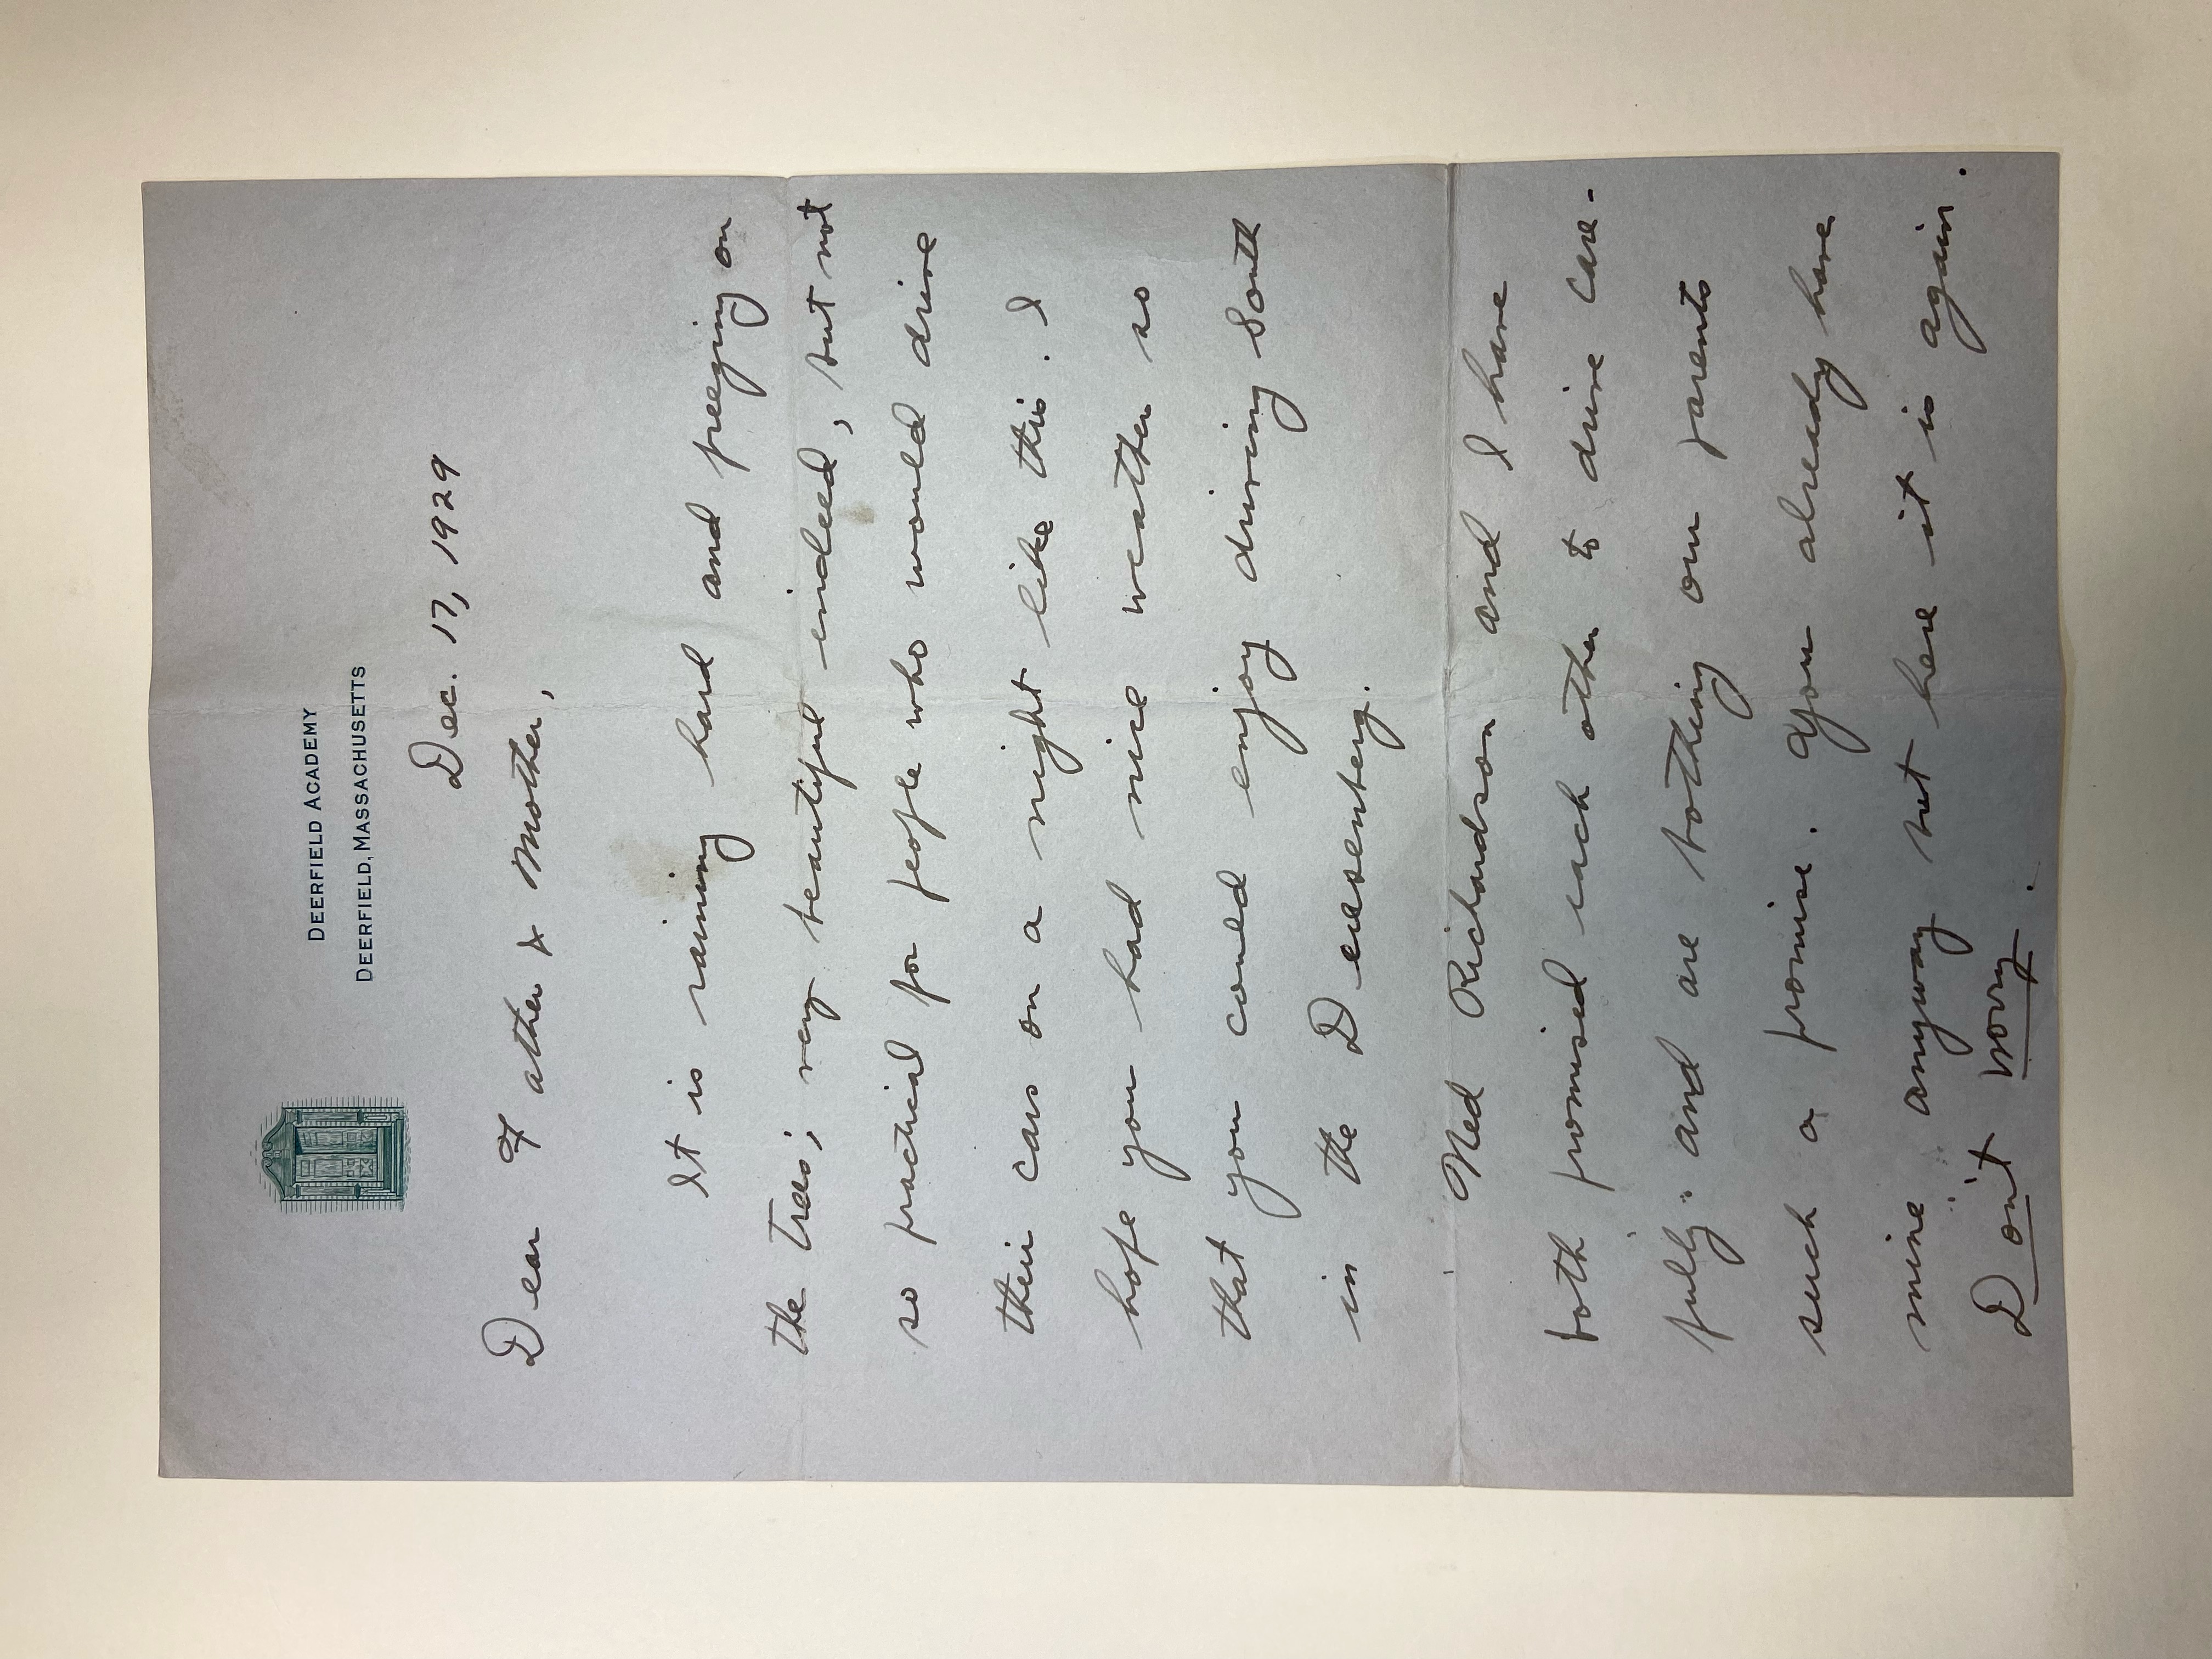 DEERFIELD ACADEMY
DEERFIELD, MASSACHUSETTS
Dec. 17, 1929
Dear Father & Mother,
It is raining hard and freezing on
the trees; very beautiful indeed, but not
so practical for people who would drive
their cars on a night like this. I
hope you had nice weather so
that you could enjoy driving South
in the Deusenberg.
Ned Richardson and I have
both promised each other to drive care-
fully: and are bothing our parents
such a promise. You already have
mine anyway but here it is again.
Don't worry.